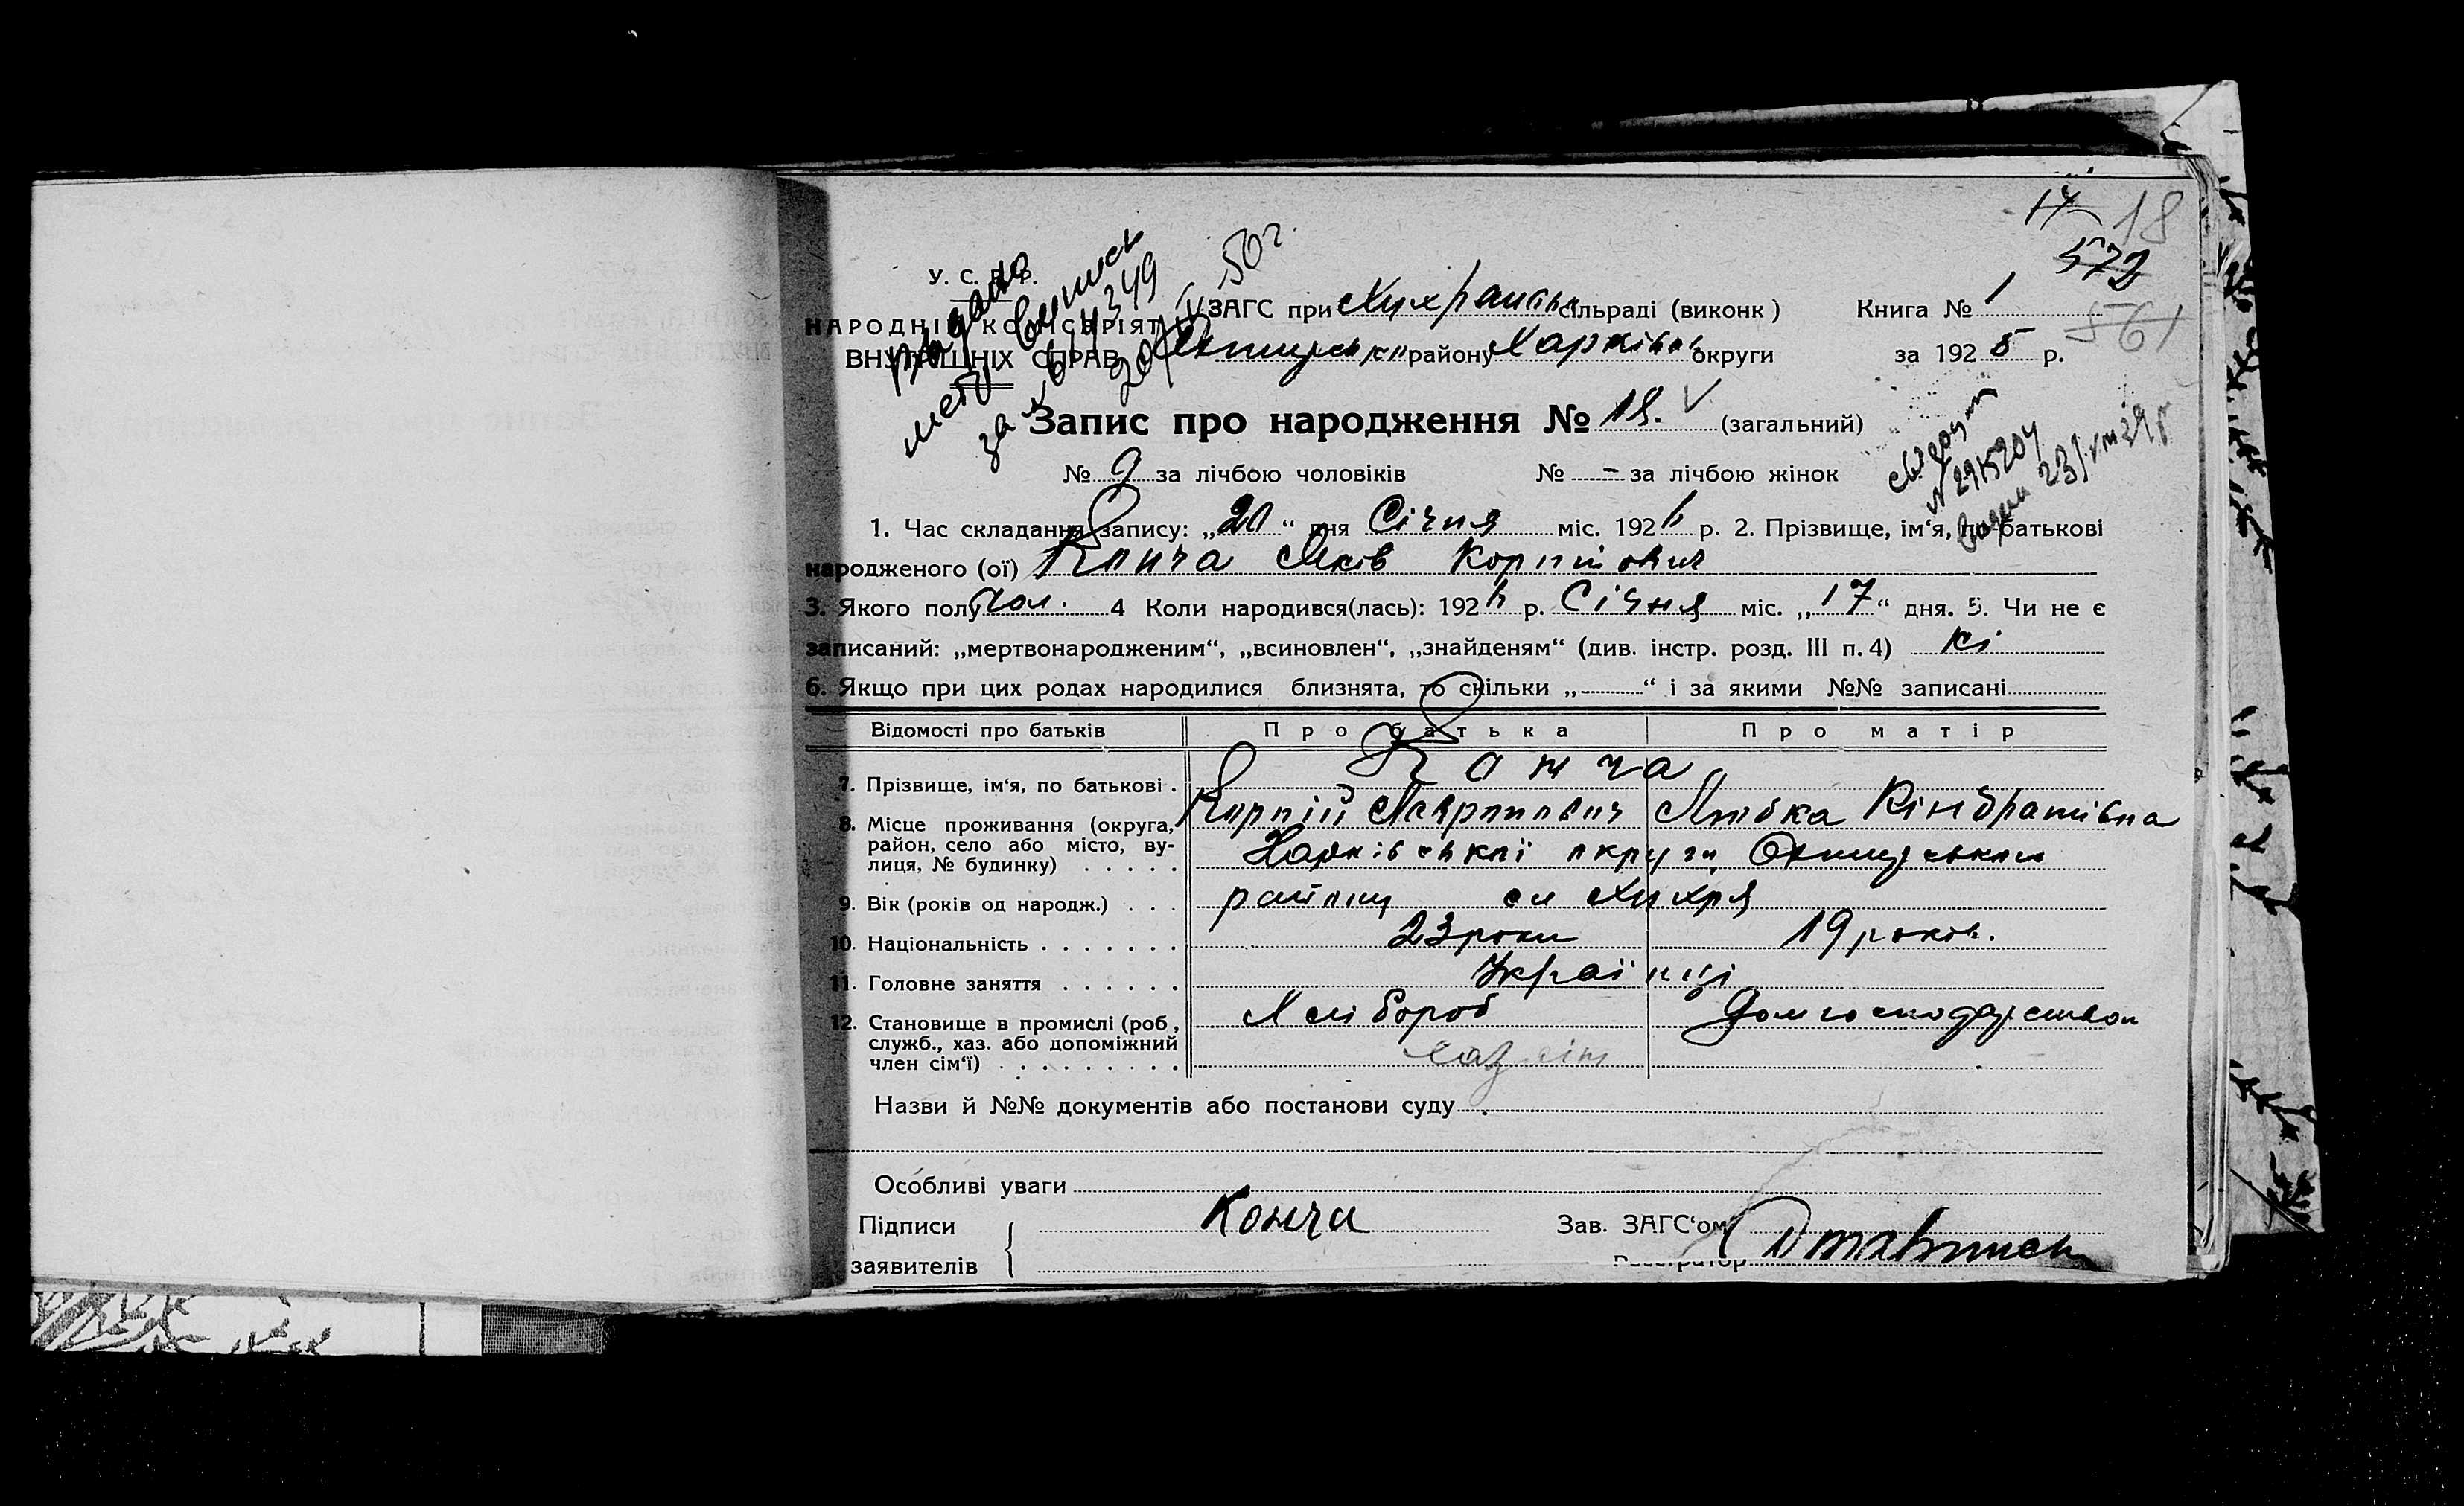 17 18
572
561
У. С. Р. Р.
НАРОДНІЙ КОМІСАРІЯТ
ВНУТРІШНІХ СПРАВ
Видано
метр. Випись
за №
20/IV-50 г.
ЗАГС при Хухрянськ сільраді (виконк)
Охтирськ району Харківськ округи
Книга № 1
за 1925 р.
Запис про народження № 18. (загальний)
№ 9 за лічбою чоловіків № – за лічбою жінок
№ 2915204
видан 23/VIII 29 р
1. Час складання запису: „20“ дня Січня міс. 192 р. 2. Прізвище, ім‘я, по батькові
народженого (ої) Конча Яків Корпійович
3. Якого полу чол. 4 Коли народився(лась): 192 р. Січня міс. „17“ дня. 5. Чи не є
записаний: „мертвонародженим“, „всиновлен“, „знайденям“ (див. інстр. розд. III п. 4) ні
6. Якщо при цих родах народилися близнята, то скільки „ “ і за якими №№ записані
Відомості про батьків Про батька Про матір
7. Прізвище, ім‘я, по батькові . Конча
Корпій Лаврінович Любка Кіндратівна
8. Місце проживання (округа, район, село або місто, вулиця, № будинку) . . . . . Харківської округи Охтирського
району сл Хухря
9. Вік (років од народж.) . . . 23 роки 19 років.
10. Національність . . . . . . . Українці
11. Головне заняття . . . . . . Хлібороб Домгосподарством
12. Становище в промислі (роб, служб., хаз. або допоміжний член сім‘ї) . . . . . . . . . хаз
Назви й №№ документів або постанови суду
Особливі уваги
Підписи Конча Зав. ЗАГС‘ом
заявителів Реєстратор